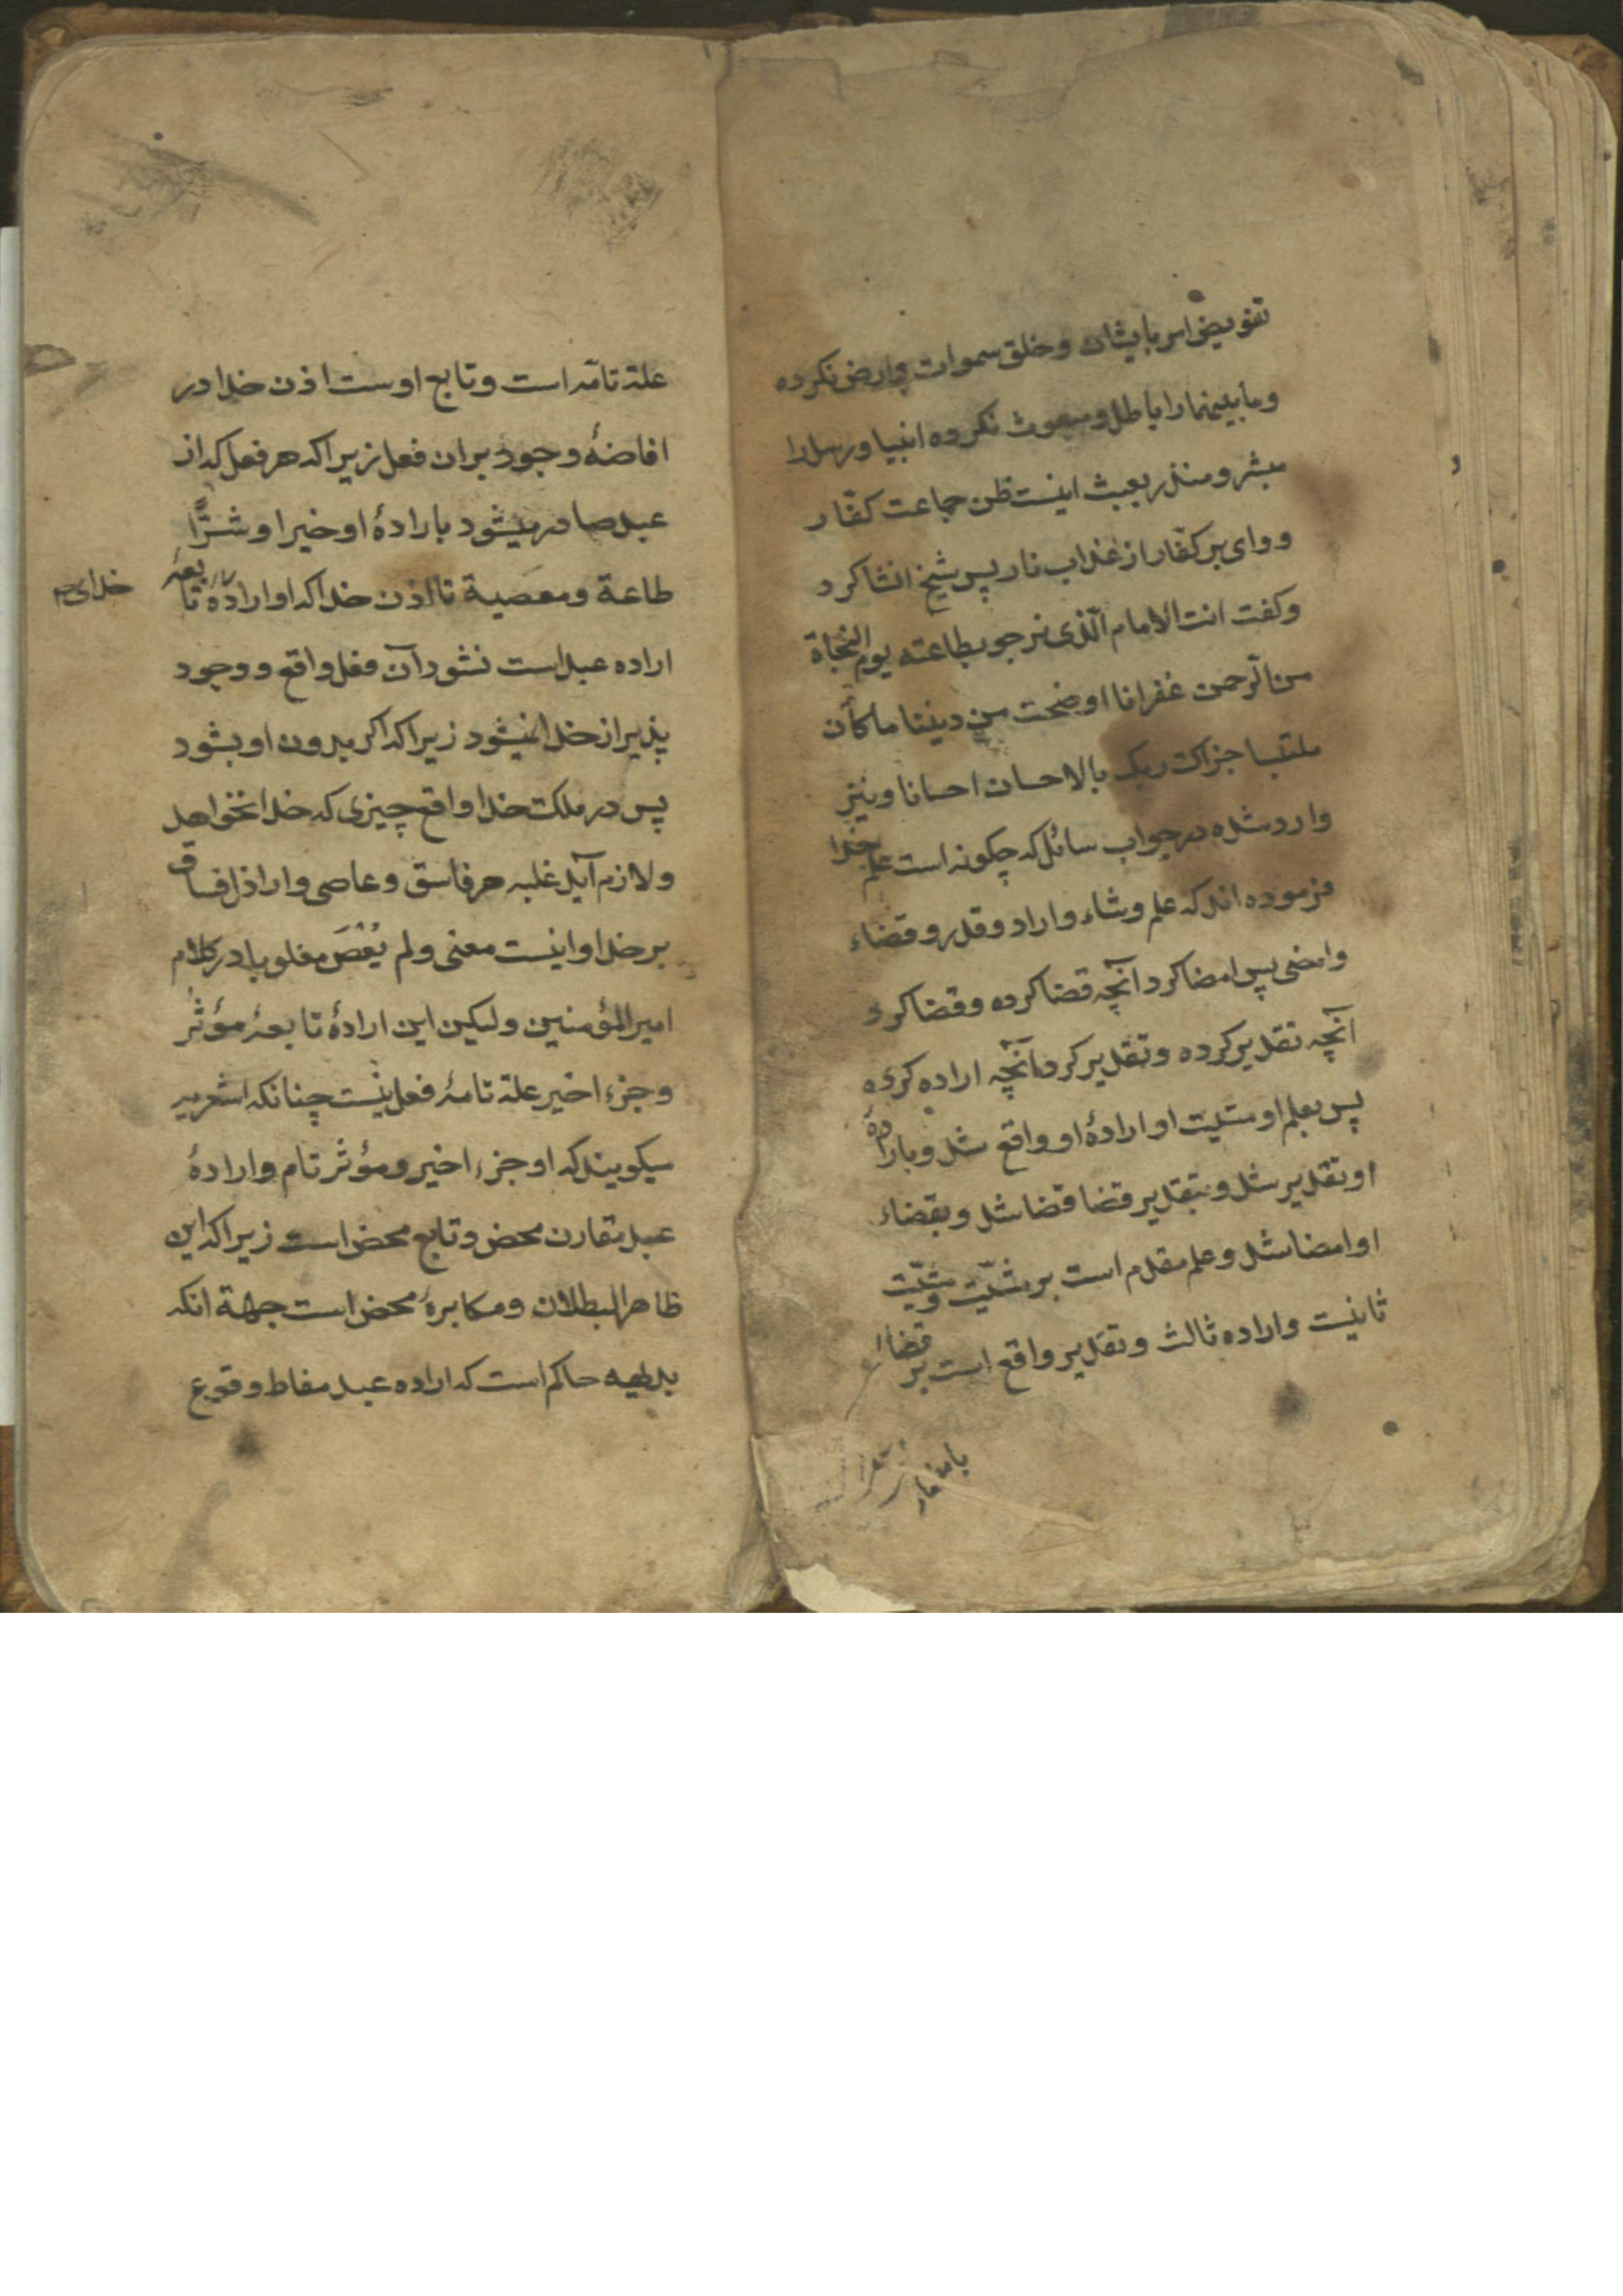 تفویض امر بایشان و خلق سموات وارض نکرده
وما بینهما را باطل و مبعوث نکرده انبیا ورسل را
مبشر و منذر بعبث اینست ظن جماعت کفّار
و وای بر کفّار از عذاب نار پس شیخ انشا کرد
وکفت انت الامام الّذی نرجو بطاعته یوم النجاة
من الرّحمن غفرانا اوضحت من دیننا ما کان
ملتبسا جزاک ربک بالاحسان احسانا ونیز
وارد شده در جواب سائل که چکونه است علم خدا
فرموده اند که علم وشاء واراد وقدر وقضاء
وامضی پس امضا کرد آنچه قضا کرده وقضا کرد
آنچه تقدیر کرده وتقدیر کرد آنچه اراده کرده
پس بعلم او مشیّت او ارادۀ او واقع شد وبارادۀ
او تقدیر شد وبتقدیر قضا قضا شد وبقضاء
او امضا شد وعلم مقدم است بر مشیّت ومشیّت
ثانیست واراده ثالث وتقدیر واقع است بر قضاء
علة تامّه است وتابع اوست اذن خدا در
افاضۀ وجود بران فعل زیرا که هر فعل که از
عبد صادر میشود بارادۀ او خیرا وشرًّا
طاعة ومعصیة تا اذن خدا که او ارادۀ تابعۀ
خدای
اراده عبد است نشود آن فعل واقع ووجود
پذیر از خدا نمیشود زیرا که اکر بدون او بشود
پس در ملکت خدا واقع چیزی که خدا نخواهد
ولازم آید غلبه هر فاسق وعاصی واراذل فساق
بر خدا واینست معنی ولم یُعْصَ مغلوبا در کلام
امیرالمؤمنین ولیکن این ارادۀ تابعۀ مؤثر
وجزء اخیر علة تامۀ فعل نیست چنانکه اشعریه
میکویند که او جزء اخیر ومؤثر تام وارادۀ
عبد مقارن محض وتابع محض است زیرا که این
ظاهر البطلان ومکابرۀ محض است جهة انکه
بدیهه حاکم است که اراده عبد مفاط وقوع